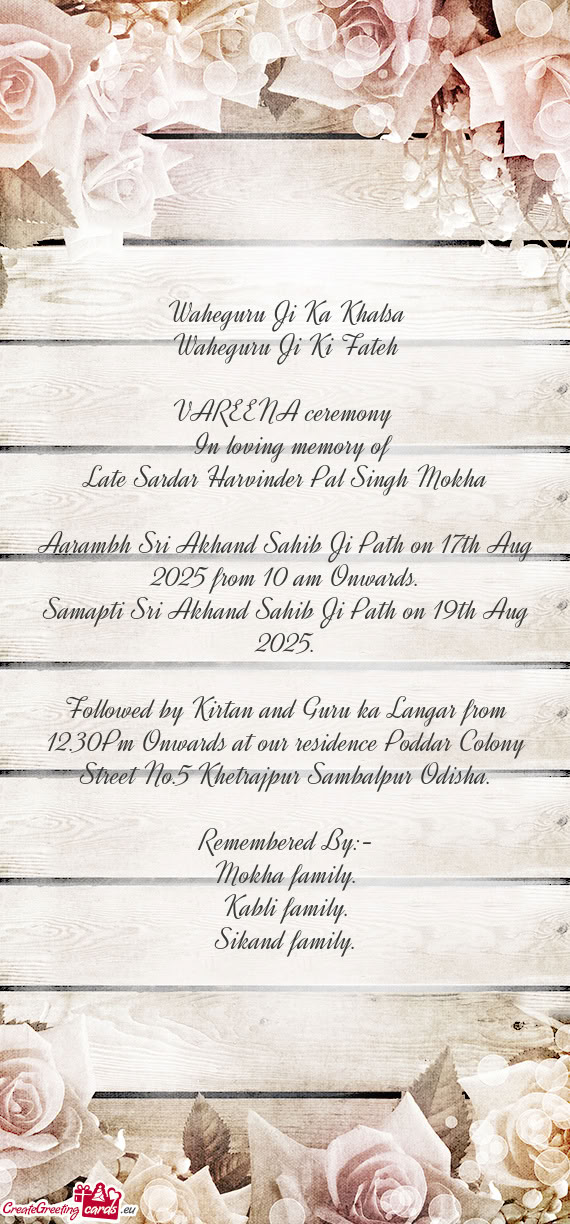 Waheguru Ji Ka Khalsa
Waheguru Ji Ki Fateh
VAREENA ceremony
In loving memory of
Late Sardar Harvinder Pal Singh Mokha
Aarambh Sri Akhand Sahib Ji Path on 17th Aug
2025 from 10 am Onwards.
Samapti Sri Akhand Sahib Ji Path on 19th Aug
2025.
Followed by Kirtan and Guru ka Langar from
12.30Pm Onwards at our residence Poddar Colony
Street No.5 Khetrajpur Sambalpur Odisha.
Remembered By:-
Mokha family.
Kabli family.
Sikand family.
CreateGreeting cards .eu